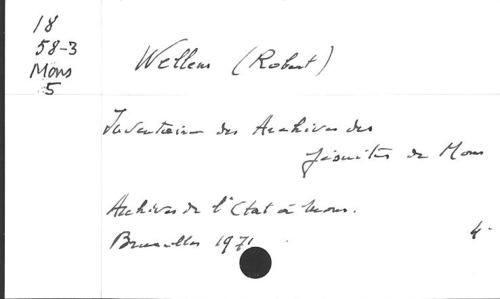 18
58-3
Mons
5
Wellens (Robert)
Inventaire des Archives des
Jésuites de Mons
Archives de l'Etat à Mons.
Bruxelles 1971
4.